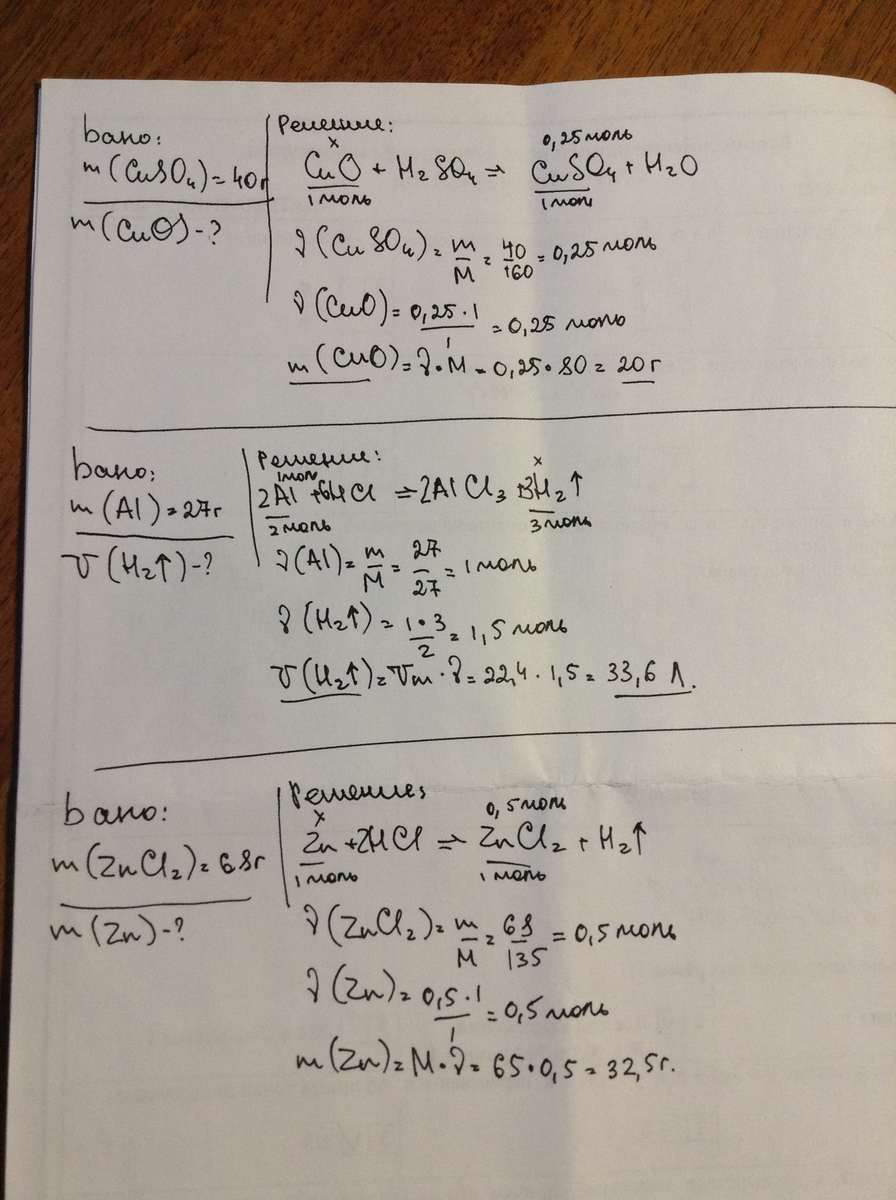 Дано:
m(CuSO₄)=40г
m(CuO)-?
Решение:
x 0,25 моль
CuO + H₂SO₄ ⇒ CuSO₄ + H₂O
1 моль 1 моль
ν(CuSO₄) = m/M = 40/160 = 0,25 моль
ν(CuO) = 0,25·1/1 = 0,25 моль
m(CuO) = ν·M = 0,25·80 = 20 г
Дано:
m(Al)=27г
V(H₂↑)-?
Решение:
1 моль x
2Al + 6HCl ⇒ 2AlCl₃ + 3H₂↑
2 моль 3 моль
ν(Al) = m/M = 27/27 = 1 моль
ν(H₂↑) = 1·3/2 = 1,5 моль
V(H₂↑) = Vm·ν = 22,4·1,5 = 33,6 л.
Дано:
m(ZnCl₂) = 68г
m(Zn)-?
Решение:
x 0,5 моль
Zn + 2HCl ⇒ ZnCl₂ + H₂↑
1 моль 1 моль
ν(ZnCl₂) = m/M = 68/135 = 0,5 моль
ν(Zn) = 0,5·1/1 = 0,5 моль
m(Zn) = M·ν = 65·0,5 = 32,5г.